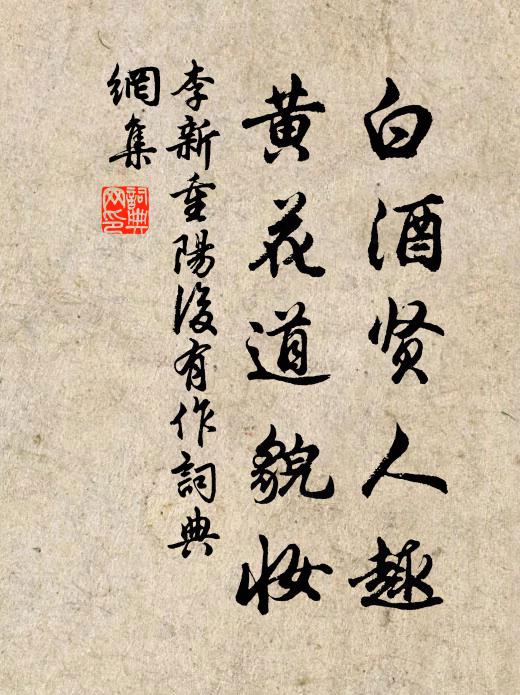 白酒贤人趣
黄花道貌妆
李新重陽後有作詞典
網集
詞典網印